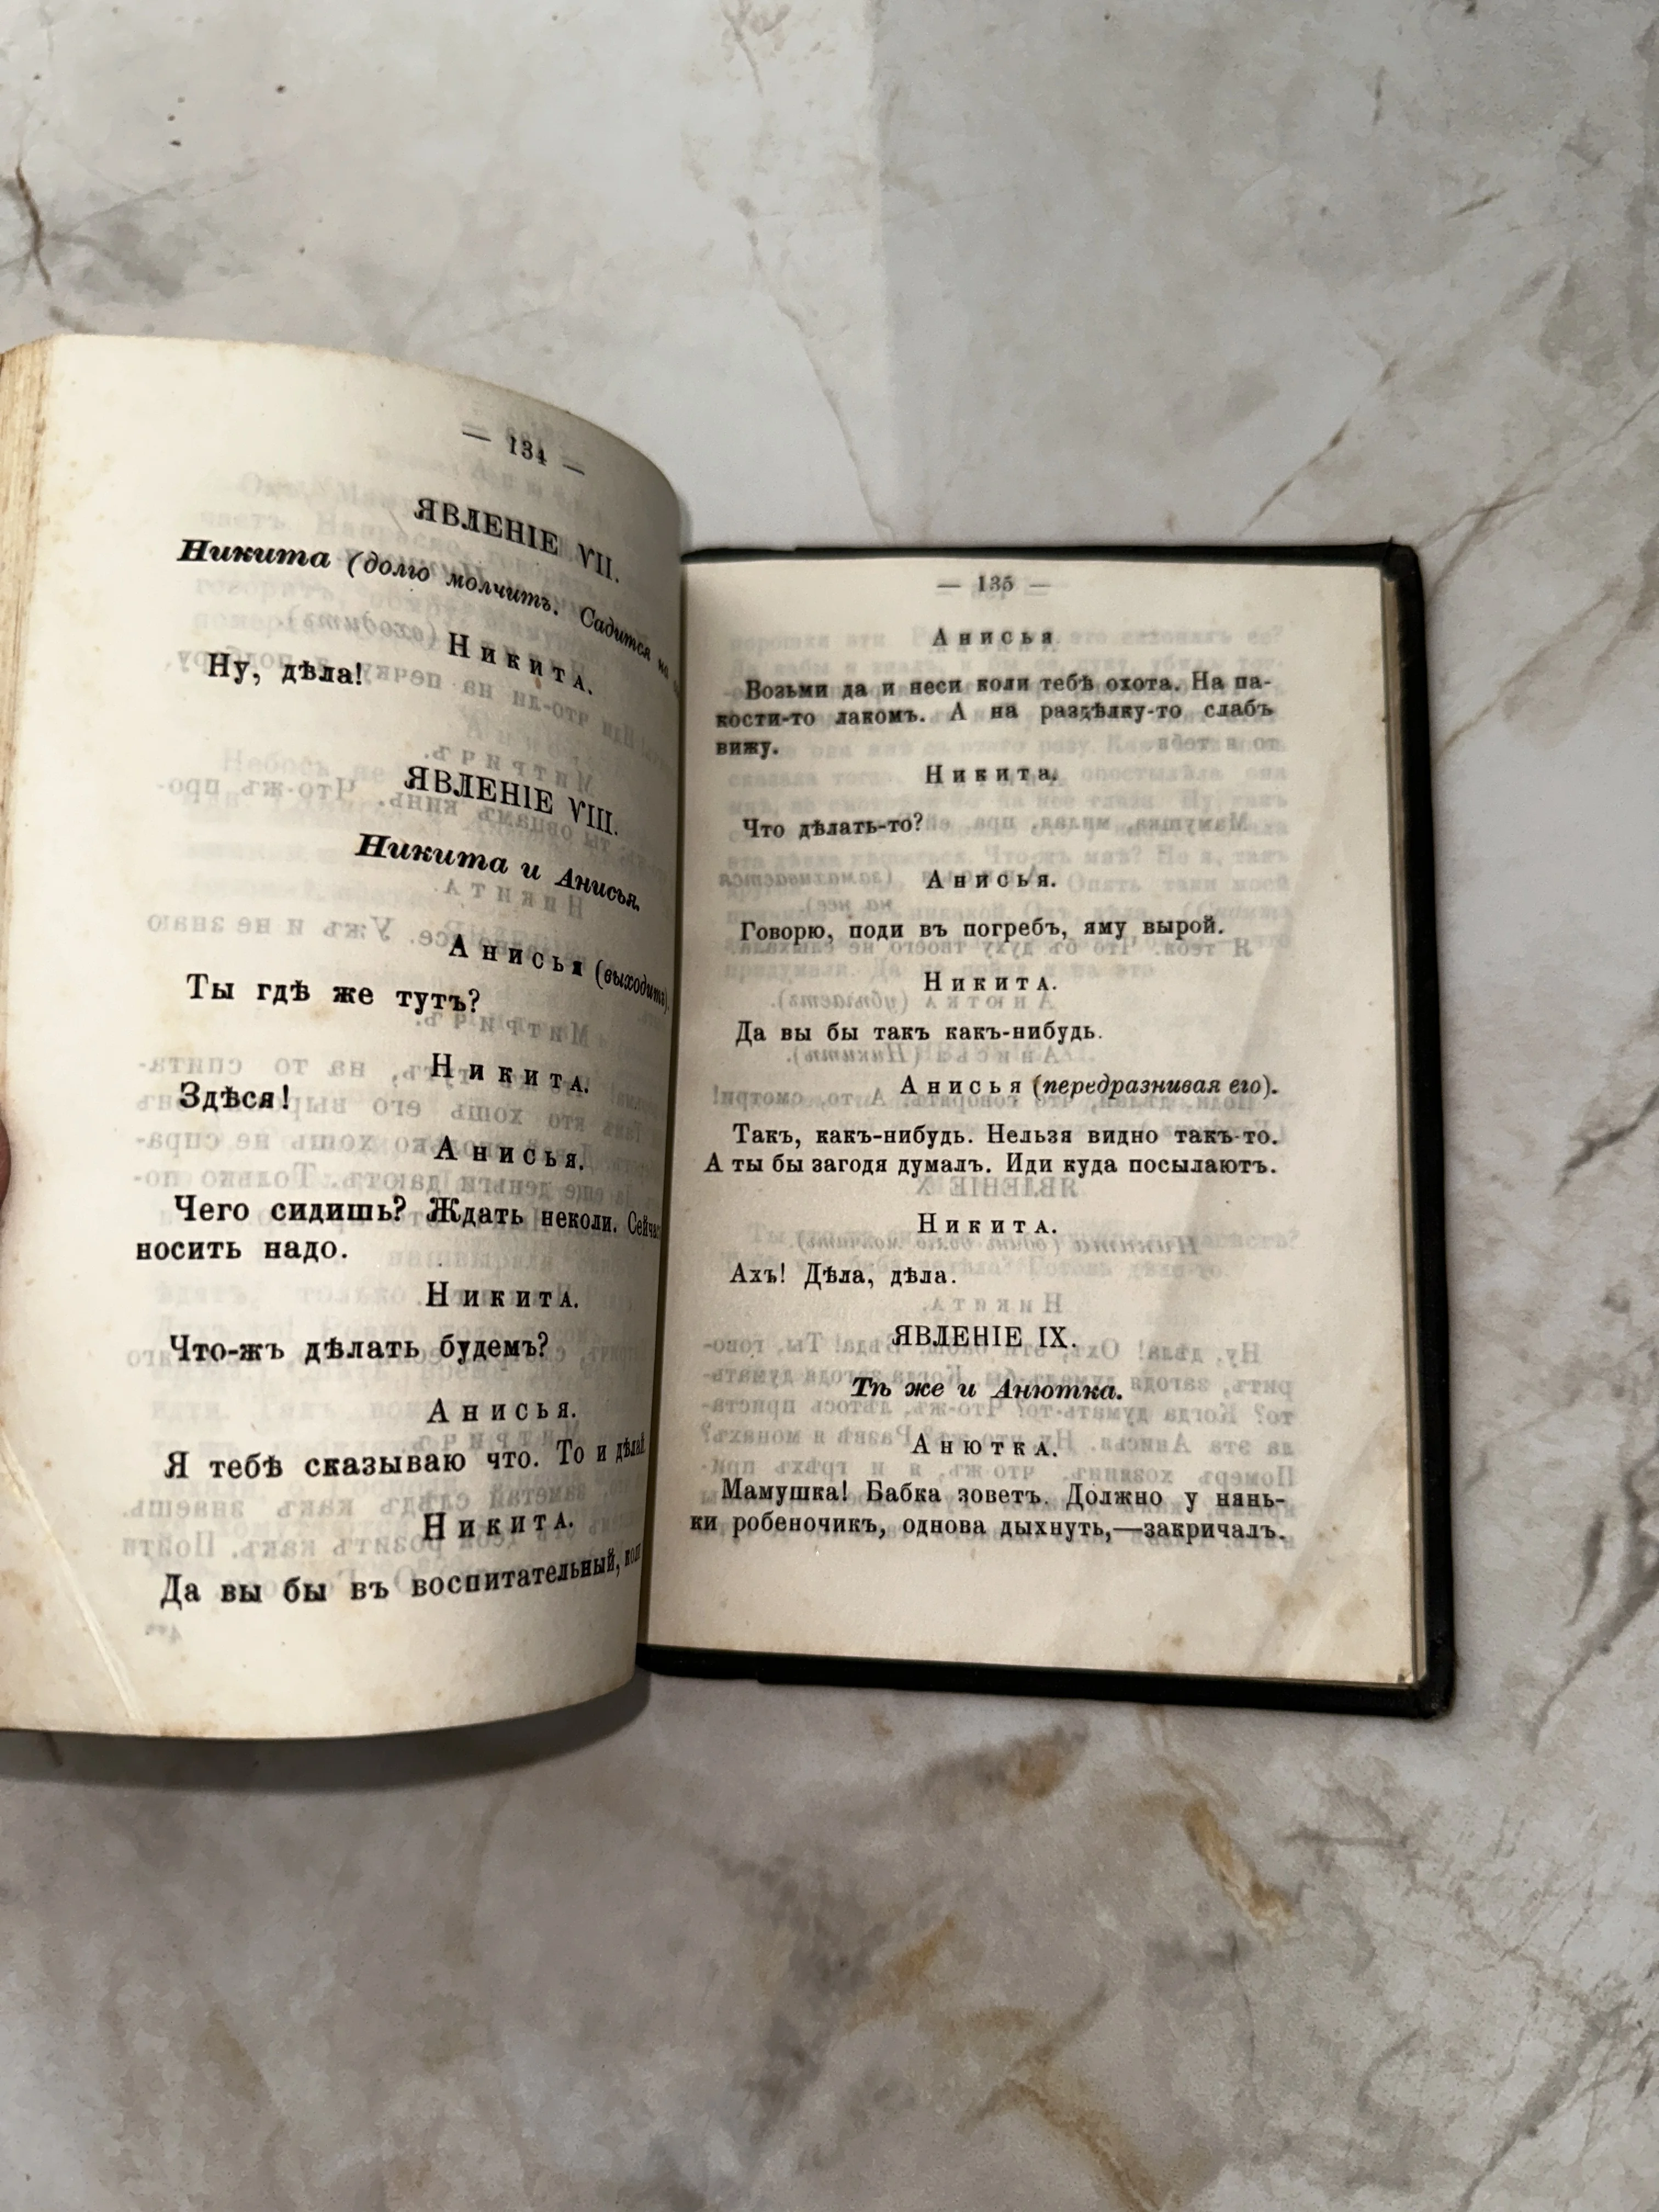 — 134 —
ЯВЛЕНІЕ VII.
Никита (долго молчитъ. Садится на
Никита.
Ну, дѣла!
ЯВЛЕНІЕ VIII.
Никита и Анисья.
Анисья (выходитъ).
Ты гдѣ же тутъ?
Никита.
Здѣся!
Анисья.
Чего сидишь? Ждать неколи. Сейчас
носить надо.
Никита.
Что-жъ дѣлать будемъ?
Анисья.
Я тебѣ сказываю что. То и дѣлай
Никита.
Да вы бы въ воспитательный, коли
— 135 —
Анисья
Возьми да и неси коли тебѣ охота. На па-
кости-то лакомъ. А на раздѣлку-то слабъ
вижу.
Никита.
Что дѣлать-то?
Анисья.
Говорю, поди въ погребъ, яму вырой.
Никита.
Да вы бы такъ какъ-нибудь.
Анисья (передразнивая его).
Такъ, какъ-нибудь. Нельзя видно такъ-то.
А ты бы загодя думалъ. Иди куда посылаютъ.
Никита.
Ахъ! Дѣла, дѣла.
ЯВЛЕНІЕ IX.
Тѣ же и Анютка.
Анютка.
Мамушка! Бабка зоветъ. Должно у нянь-
ки робеночикъ, однова дыхнуть,—закричалъ.